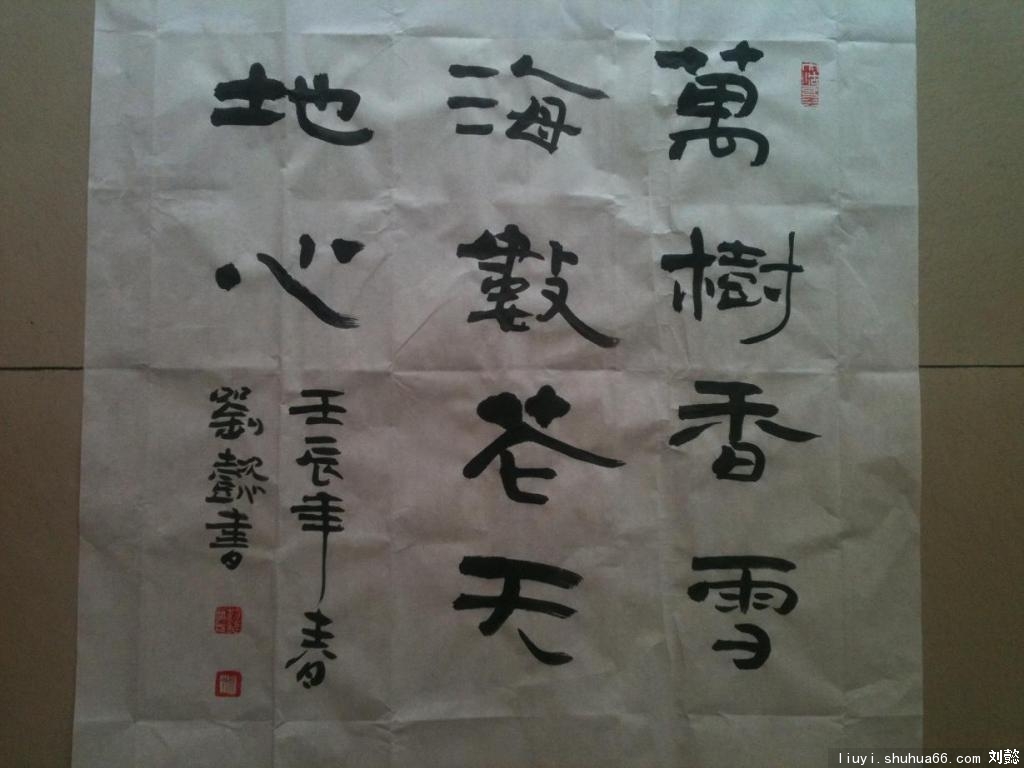 萬樹香雪
海數花天
地心
壬辰年春
劉懿書
liuyi.shuhua66.com 刘懿